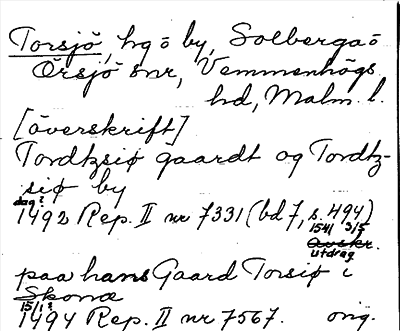 Torsjö, hg ō by, Solberga ō
Örsjö snr, Vemmenhögs
hd, Malm. l.
[överskrift]
Tordtzsiø gaardt og Tordtz-
siø by
dag?
1492 Rep. II nr 7331 (bd 7, s. 494)
1541 3/5
Avskr.
utdrag
paa hans Gaard Torsiø i
Skonæ
15/1?
1494 Rep. II nr 7567. orig.